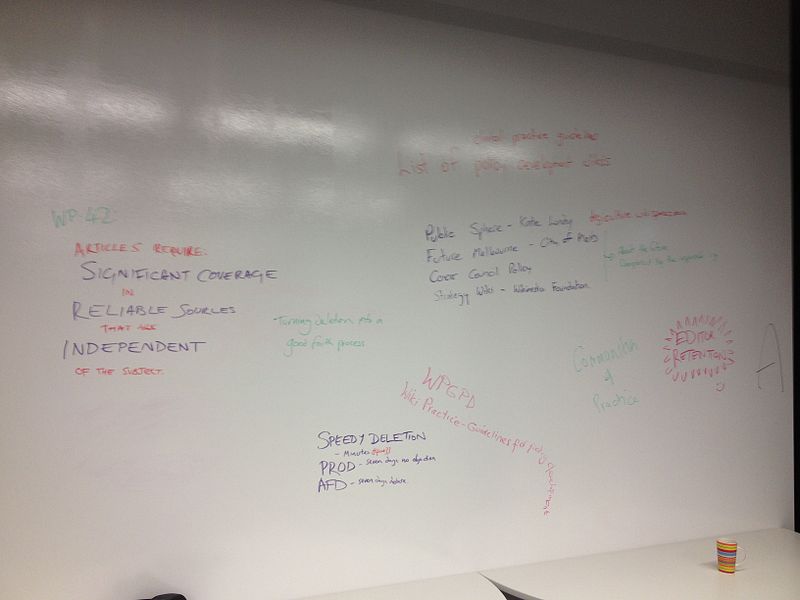 clinical practice guidelines
List of policy development wikis
WP:42
ARTICLES REQUIRE:
SIGNIFICANT COVERAGE
IN
RELIABLE SOURCES
THAT ARE
INDEPENDENT
OF THE SUBJECT.
Public Sphere - Kate Lundy
Future Melbourne - City of Melb
Cancer Council Policy
Strategy Wiki - Wikimedia Foundation
Turning deletion into a
good faith process
Community
of
Practice
EDITOR
RETENTION
A
WPGPD
Wiki Practice - Guidelines for policy development
SPEEDY DELETION
- Minutes
PROD - seven days no objection
AFD - seven days debate